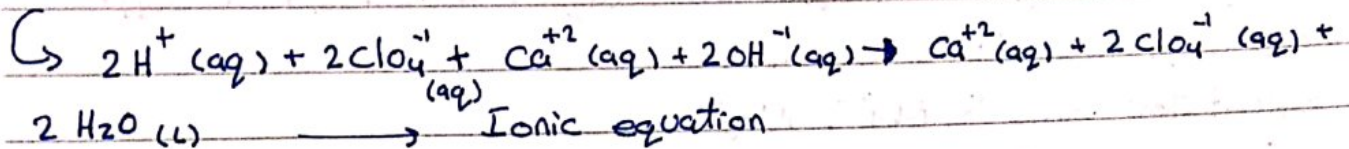 ↳ 2H⁺ (aq) + 2Clo₄⁻¹ (aq) + Ca⁺² (aq) + 2OH⁻¹ (aq) → Ca⁺² (aq) + 2Clo₄⁻¹ (aq) +
2 H₂O (L) ⟶ Ionic equation